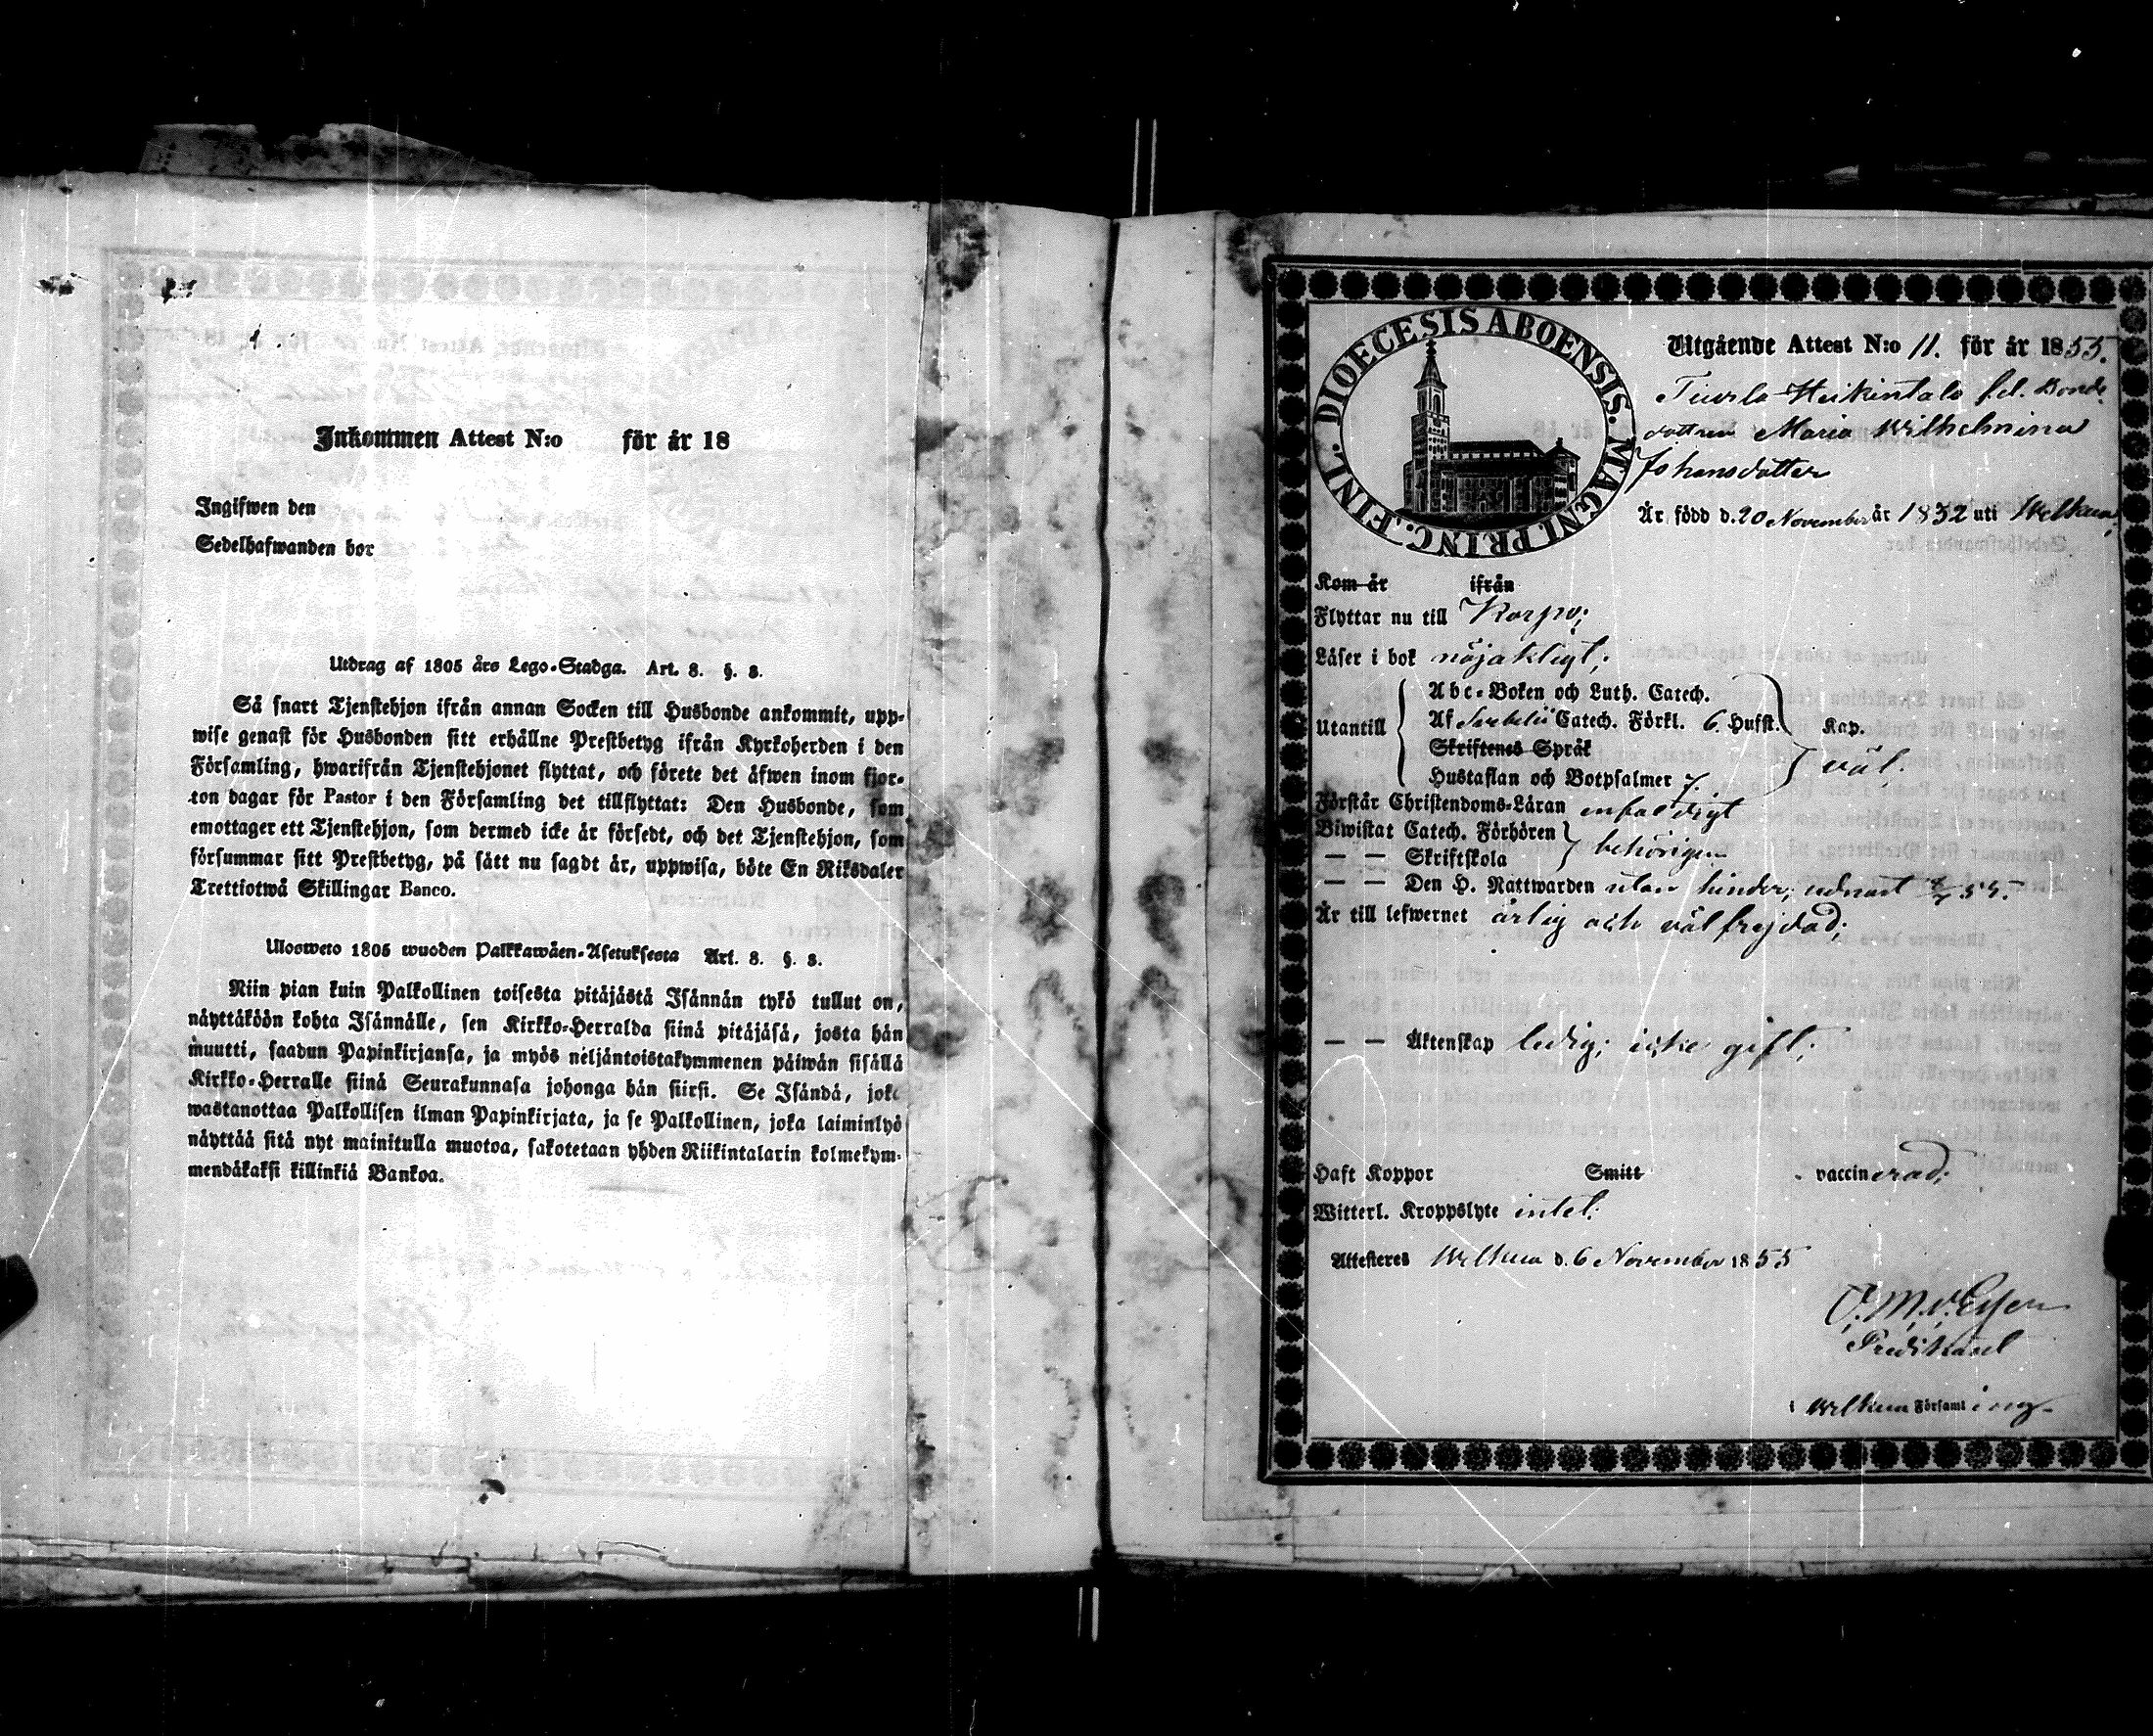 Inkommen Attest N:o för år 18
Ingifwen den
Sedelhafwanden bor
Utdrag af 1805 års Lego-Stadga. Art. 8. §. 8.
Så snart Tjenstehjon ifrån annan Socken till Husbonde ankommit, upp-
wise genast för Husbonden sitt erhållne Prestbetyg ifrån Kyrkoherden i den
Församling, hwarifrån Tjenstehjonet flyttat, och förete det äfwen inom fjor-
ton dagar för Pastor i den Församling det tillflyttat: Den Husbonde, som
emottager ett Tjenstehjon, som dermed icke är försedt, och det Tjenstehjon, som
försummar sitt Prestbetyg, på sätt nu sagdt är, uppwisa, böte En Riksdaler
Trettiotwå Skillingar Banco.
Ulosweto 1805 wuoden Palkkawäen-Asetuksesta Art. 8. §. 8.
Niin pian kuin Palkollinen toisesta pitäjästä Isännän tykö tullut on,
näyttäköön kohta Isännälle, sen Kirkko-Herralda siinä pitäjäsä, josta hän
muutti, saadun Papinkirjansa, ja myös neljäntoistakymmenen päiwän sisällä
Kirkko-Herralle siinä Seurakunnasa johonga hän siirsi. Se Isändä, joka
wastanottaa Palkollisen ilman Papinkirjata, ja se Palkollinen, joka laiminlyö
näyttää sitä nyt mainitulla muotoa, sakotetaan yhden Riikintalarin kolmekym-
mendäkaksi killinkiä Bankoa.
DIOECESIS ABOENSIS. MAGNI. PRINC. FINL.
Utgående Attest N:o 11. för år 1855.
Heikintalo f.d. Bonde
dottren Maria Wilhelmina
Johansdotter
Är född d. 20 November år 1832 uti Welkua
Kom år ifrån
Flyttar nu till Korpo;
Läser i bok nöjaktigt;
Abc-Boken och Luth. Catech.
Utantill Af Svebelii Catech. Förkl. 6. Hufst. Kap.
Skriftenes Språk
Hustaflan och Botpsalmer 7. väl;
Förstår Christendoms-Läran enfaldigt
Biwistat Catech. Förhören
— — Skriftskola behörigen
— — Den H. Nattwarden utan hinder, 55.
Är till lefwernet ärlig och välfrejdad;
— — Äktenskap ledig; icke gift;
Haft Koppor Smitt vaccinerad;
Witterl. Kroppslyte intet;
Attesteres Welkua d. 6 November 1855
O. M. v. Essen
Predikant
i Welkua Församling.